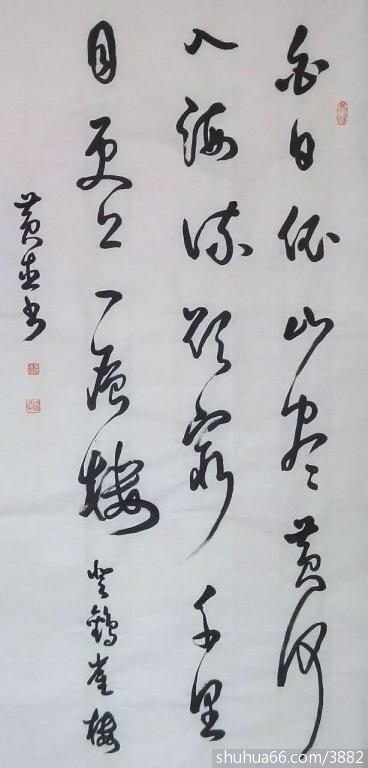 白日依山尽黄河
入海流欲穷千里
目更上一层楼
登鹳雀楼
黄 书
shuhua66.com/3882